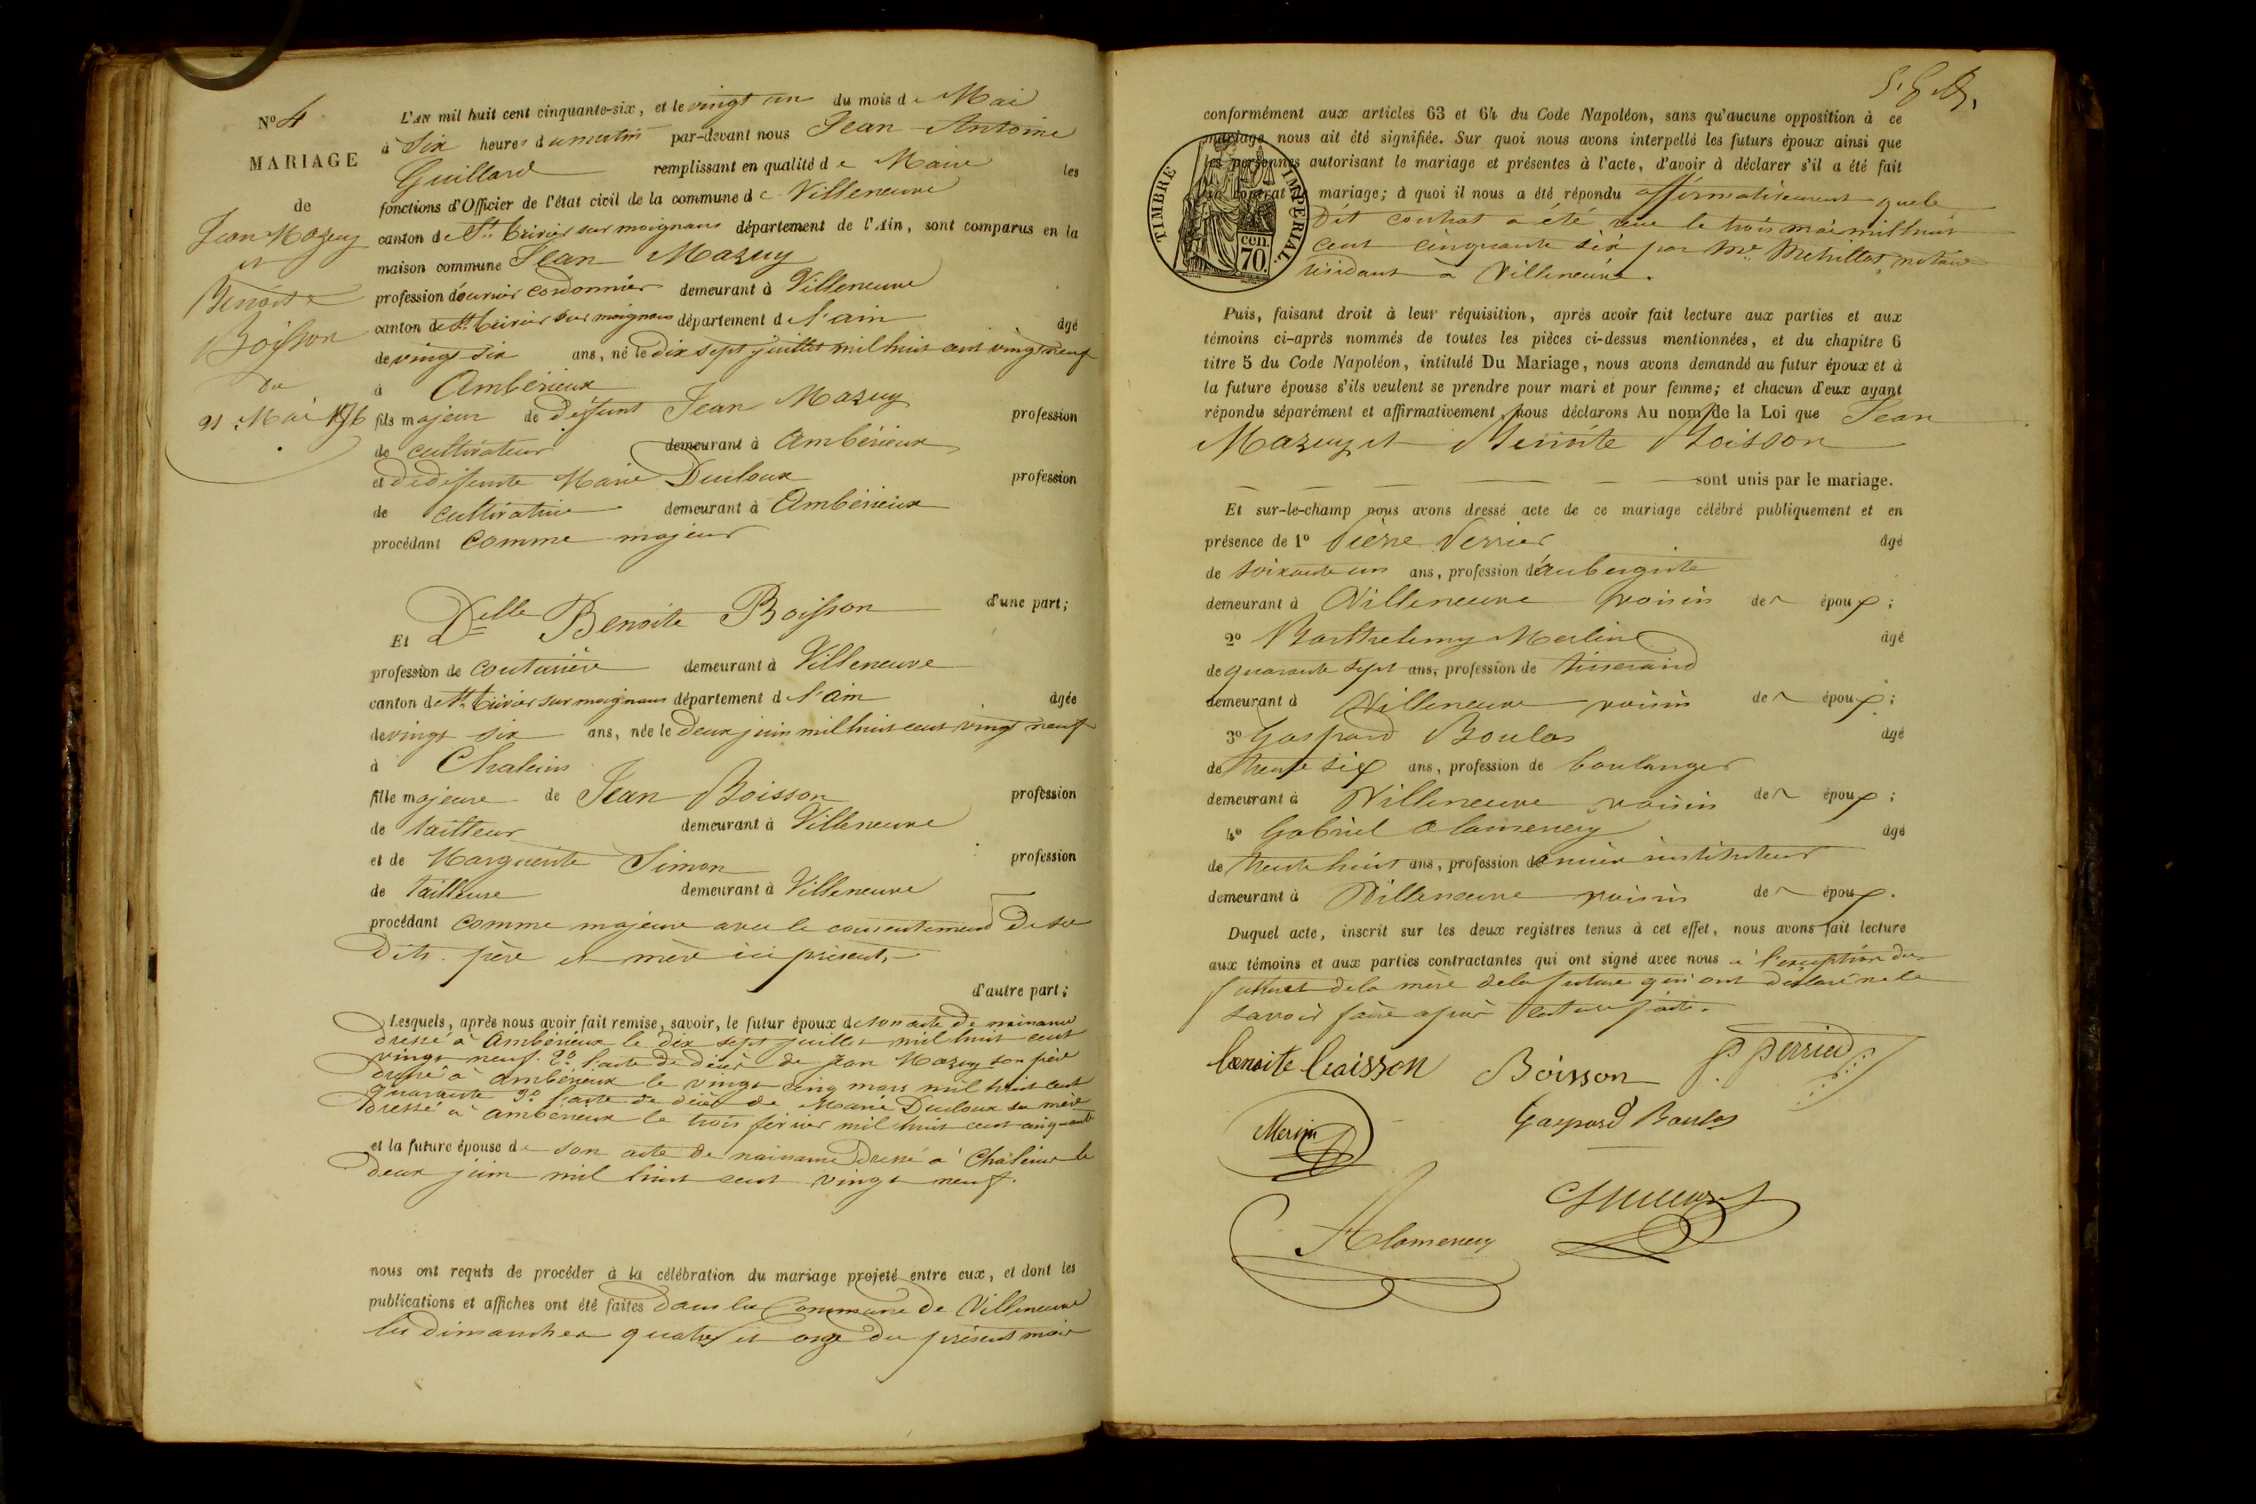 N° 4
MARIAGE
de
Jean Mazuy
et
Benoite
Boisson
du
21 Mai 1856
L'AN mil huit cent cinquante-six, et le vingt un du mois de Mai
à Six heures du matin par-devant nous Jean Antoine
Guillard remplissant en qualité de Maire les
fonctions d'Officier de l'état civil de la commune de Villeneuve
canton de St. trivier sur moignans département de l'Ain, sont comparus en la
maison commune Jean Mazuy
profession d'ouvrier cordonnier demeurant à Villeneuve
canton de St. trivier sur moignans département de l'ain âgé
de vingt six ans, né le dix sept juillet mil huit cent vingt neuf
à Ambérieux
fils majeur de défunt Jean Mazuy profession
de cultivateur demeurant à Ambérieux
et de défunte Marie Ducloux profession
de cultivatrice demeurant à Ambérieux
procédant comme majeur
d'une part;
Et Delle Benoite Boisson
profession de couturière demeurant à Villeneuve
canton de St. trivier sur moignans département de l'ain âgée
de vingt six ans, née le deux juin mil huit cent vingt neuf
à Chaleins
fille majeure de Jean Boisson profession
de tailleur demeurant à Villeneuve
et de Marguerite Simon profession
de tailleuse demeurant à Villeneuve
procédant comme majeure avec le consentement de ses
dits père et mère ici présents
d'autre part;
Lesquels, après nous avoir fait remise, savoir, le futur époux de son acte de naissance
dressé à Ambérieux le dix sept juillet mil huit cent
vingt neuf. 2° l'acte de décès de Jean Mazuy son père
dressé à ambérieux le vingt cinq mars mil huit cent
quarante 3° l'acte de décès de Marie Ducloux sa mère
dressé à ambérieux le trois février mil huit cent cinquante
et la future épouse de son acte de naissance dressé à Chaleins le
deux juin mil huit cent vingt neuf.
nous ont requis de procéder à la célébration du mariage projeté entre eux, et dont les
publications et affiches ont été faites dans la Commune de Villeneuve
les dimanches quatre et onze du présent mois
conformément aux articles 63 et 64 du Code Napoléon, sans qu'aucune opposition à ce
mariage nous ait été signifiée. Sur quoi nous avons interpellé les futurs époux ainsi que
les personnes autorisant le mariage et présentes à l'acte, d'avoir à déclarer s'il a été fait
un contrat mariage; à quoi il nous a été répondu affirmativement que le
dit contrat a été reçu le trois mai mil huit
cent cinquante six par Me. notaire
résidant à Villeneuve.
TIMBRE IMPÉRIAL.
cen.
70.
Puis, faisant droit à leur réquisition, après avoir fait lecture aux parties et aux
témoins ci-après nommés de toutes les pièces ci-dessus mentionnées, et du chapitre 6
titre 5 du Code Napoléon, intitulé Du Mariage, nous avons demandé au futur époux et à
la future épouse s'ils veulent se prendre pour mari et pour femme; et chacun d'eux ayant
répondu séparément et affirmativement, nous déclarons Au nom de la Loi que Jean
Mazuy et Benoite Boisson
sont unis par le mariage.
Et sur-le-champ nous avons dressé acte de ce mariage célébré publiquement et en
présence de 1° Pierre Perrier âgé
de soixante un ans, profession d'aubergiste
demeurant à Villeneuve voisin des époux;
2° Barthelemy Merlin âgé
de quarante sept ans, profession de tisserand
demeurant à Villeneuve voisin des époux;
3° Gaspard Boulas âgé
de trente six ans, profession de boulanger
demeurant à Villeneuve voisin des époux;
4° Gabriel Alamercery âgé
de trente huit ans, profession d'ancien instituteur
demeurant à Villeneuve voisin des époux.
Duquel acte, inscrit sur les deux registres tenus à cet effet, nous avons fait lecture
aux témoins et aux parties contractantes qui ont signé avec nous à l'exception du
futur et de la mère de la future qui ont déclaré ne le
savoir faire après lecture faite.
benoite boisson Boisson P perrier
Merlin Gaspard Boulas
Alamercery